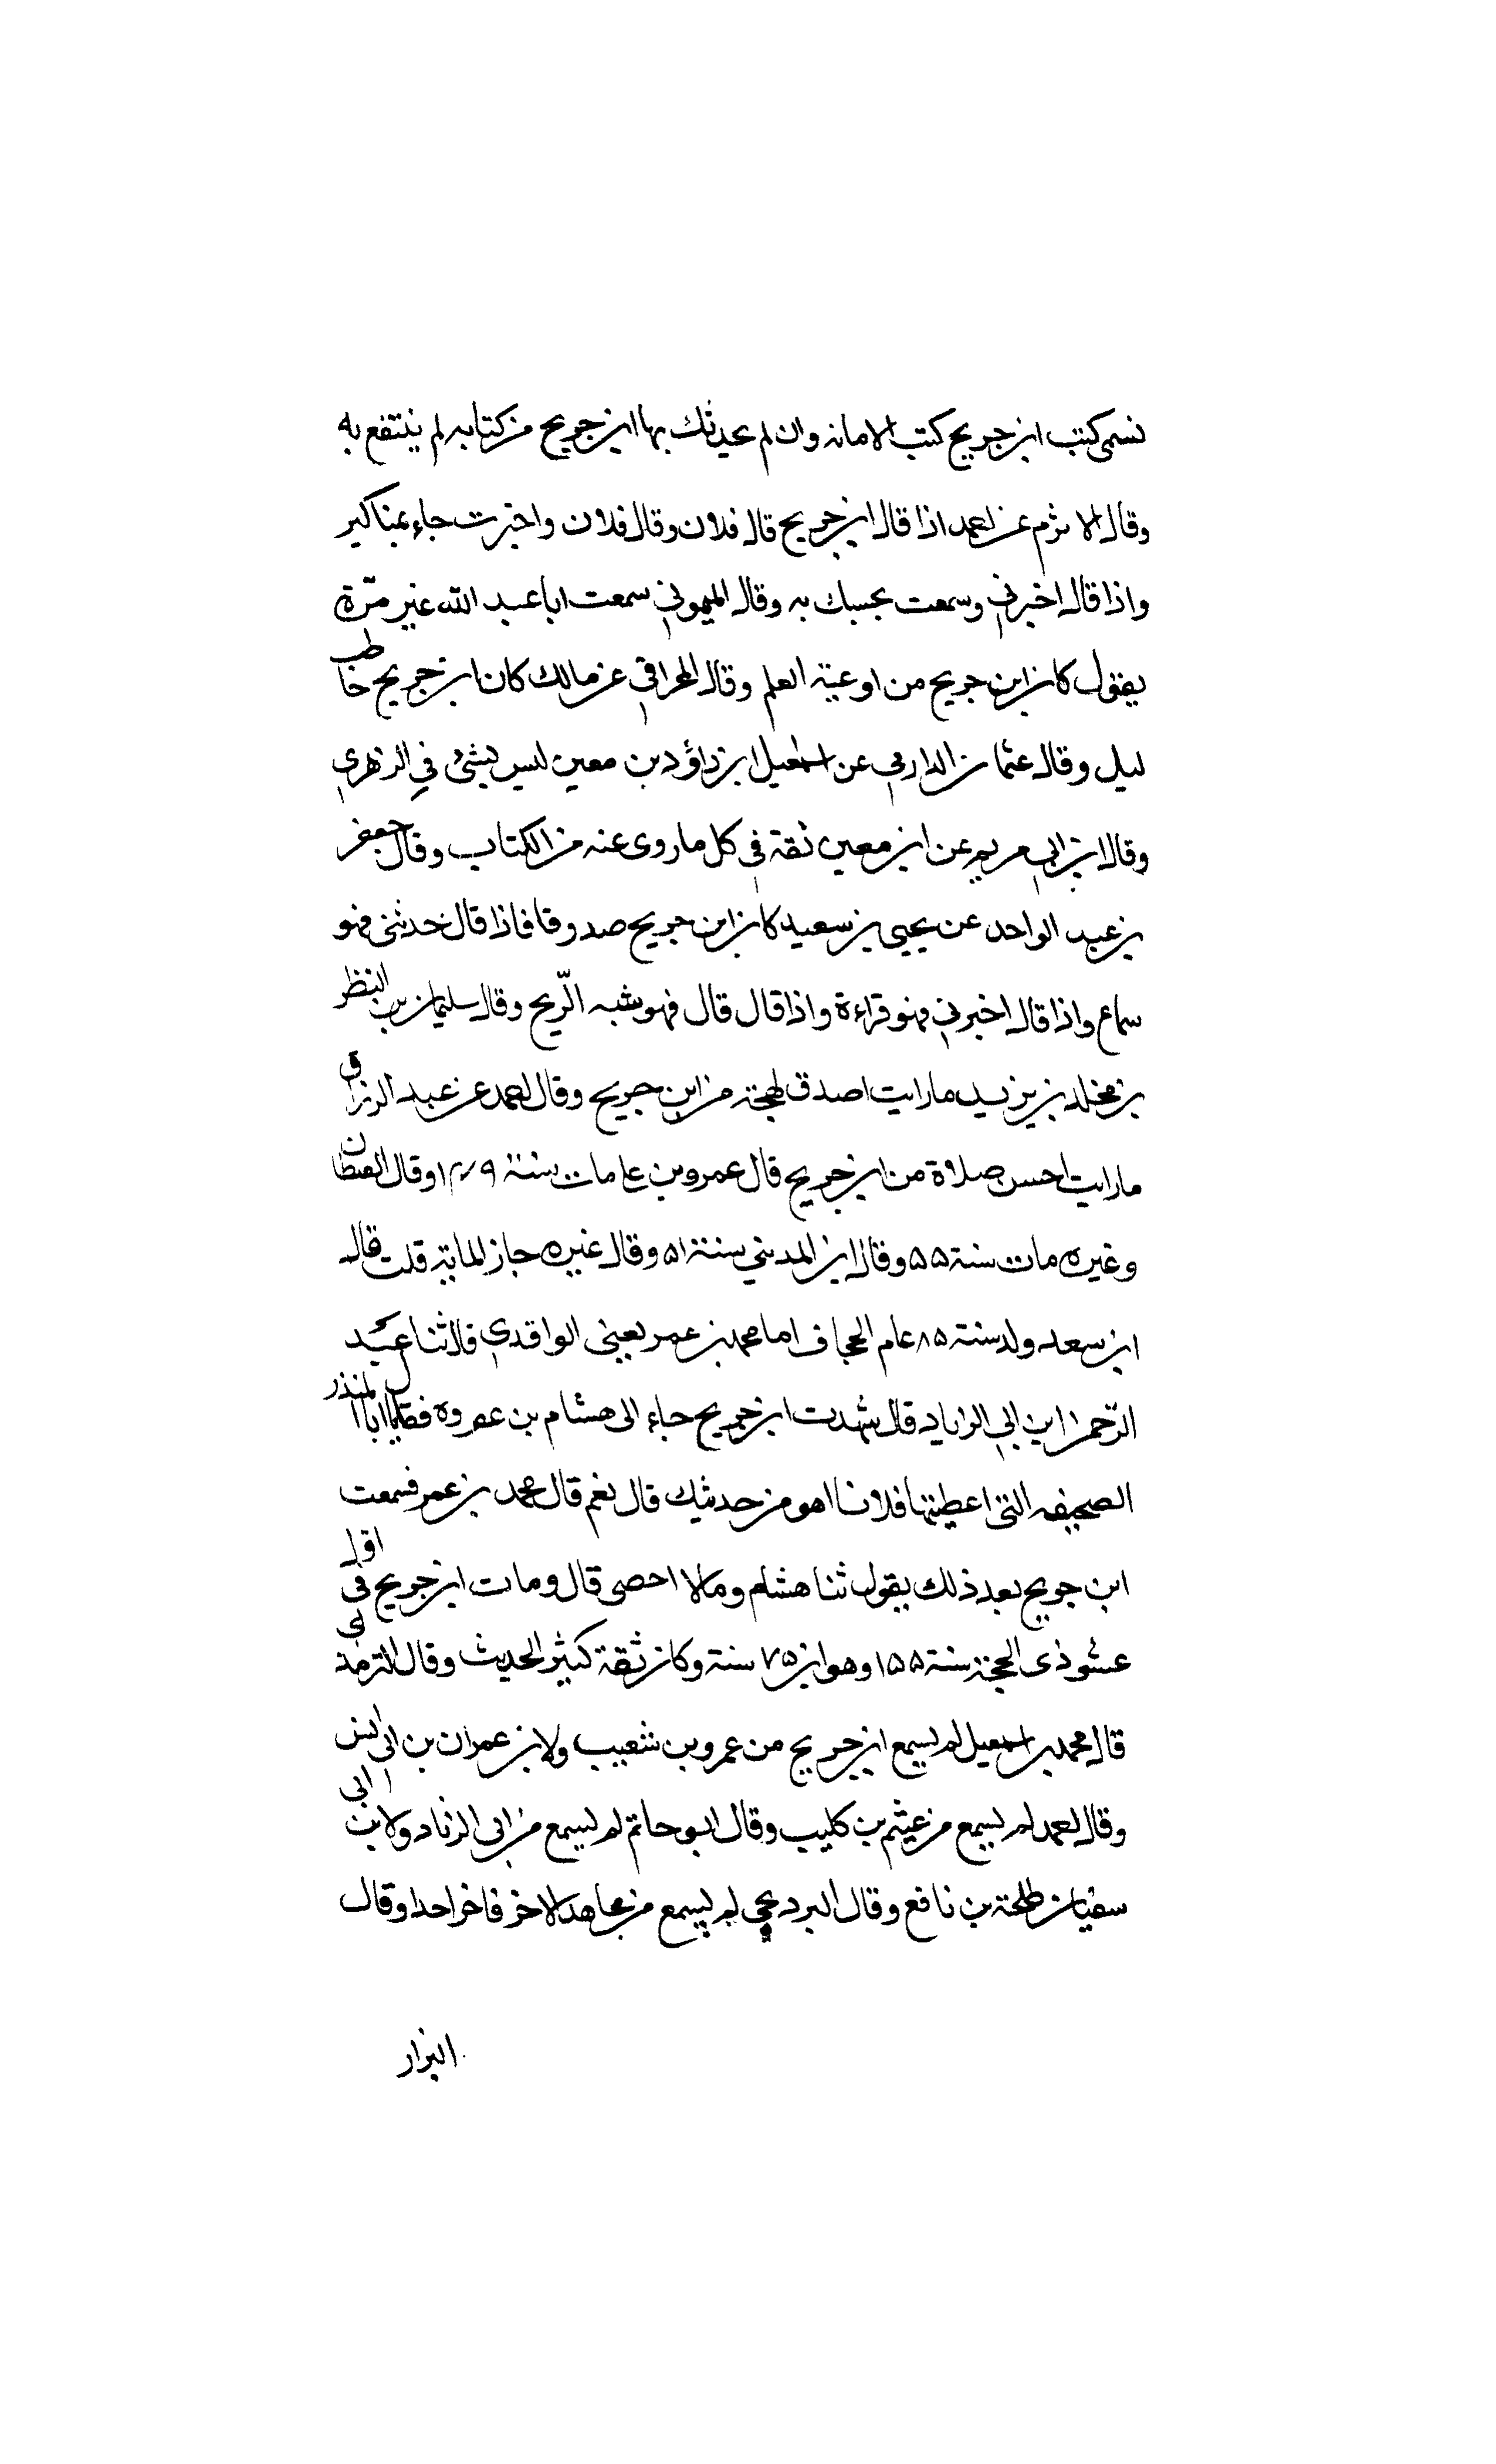 نسمى كتب ابن جريج كتب الامانه وان لم يحدثك بها ابن جريج من كتابه لم ينتفع به
وقال الاثرم عن احمد اذا قال ابن جريج قال فلان وقال فلان واخبرت جاء بمناكير
واذا قال اخبرني وسمعت بحسبك به وقال الميموني سمعت ابا عبد الله غير مرّة
يقول كان ابن جريج من اوعية العلم وقال المخراقي عن مالك كان ابن جريج حاطب
ليل وقال عثمان الدارمي عن اسمعيل ابن داؤد بن معين ليس بشئ في الزهري
وقال ابن ابي مريم عن ابن معين ثقة في كل ما روى عنه من الكتاب وقال جعفر
بن عبد الواحد عن يحيى بن سعيد كان ابن جريج صدوقا فاذا قال حدثني فهو
سماع واذا قال اخبرني فهو قراءة واذا قال قال فهو شبه الرّيح وقال سليمان بن النظر
بن مخلد بن يزيد ما رايت اصدق لهجة من ابن جريج وقال احمد عن عبد الرزاق
ما رايت احسن صلاة من ابن جريج قال عمرو بن علي مات سنة ١٤٩ وقال القطان
وغيره مات سنة ٥٥ وقال ابن المديني سنة ٥١ وقال غيره جاز الماية قلت قال
ابن سعد ولد سنة ٨٥ عام الجحاف اما محمد بن عمر يعني الواقدي قال ثنا عبد
الرّحمن ابن ابي الزناد قال شهدت ابن جريج جاء الى هشام بن عروه فقال يا ابا المنذر
الصحيفه التى اعطيتها فلانا اهو من حديثك قال نعم قال محمد بن عمر فسمعت
ابن جريج بعد ذلك يقول ثنا هشام ومالا احصى قال ومات ابن جريج في اول
عشر ذى الحجة سنة ١٥٥ وهو ابن ٧٥ سنة وكان ثقة كثير الحديث وقال الترمذى
قال محمد بن اسمعيل لم يسمع ابن جريج من عمرو بن شعيب ولا بن عمران بن ابي انس
وقال احمد لم يسمع من عيثم بن كليب وقال ابو حاتم لم يسمع من ابي الزناد ولا بن ابي
سفيان طلحة بن نافع وقال البرديجي لم يسمع من مجاهد الا خرفا خراحدا وقال
البزار